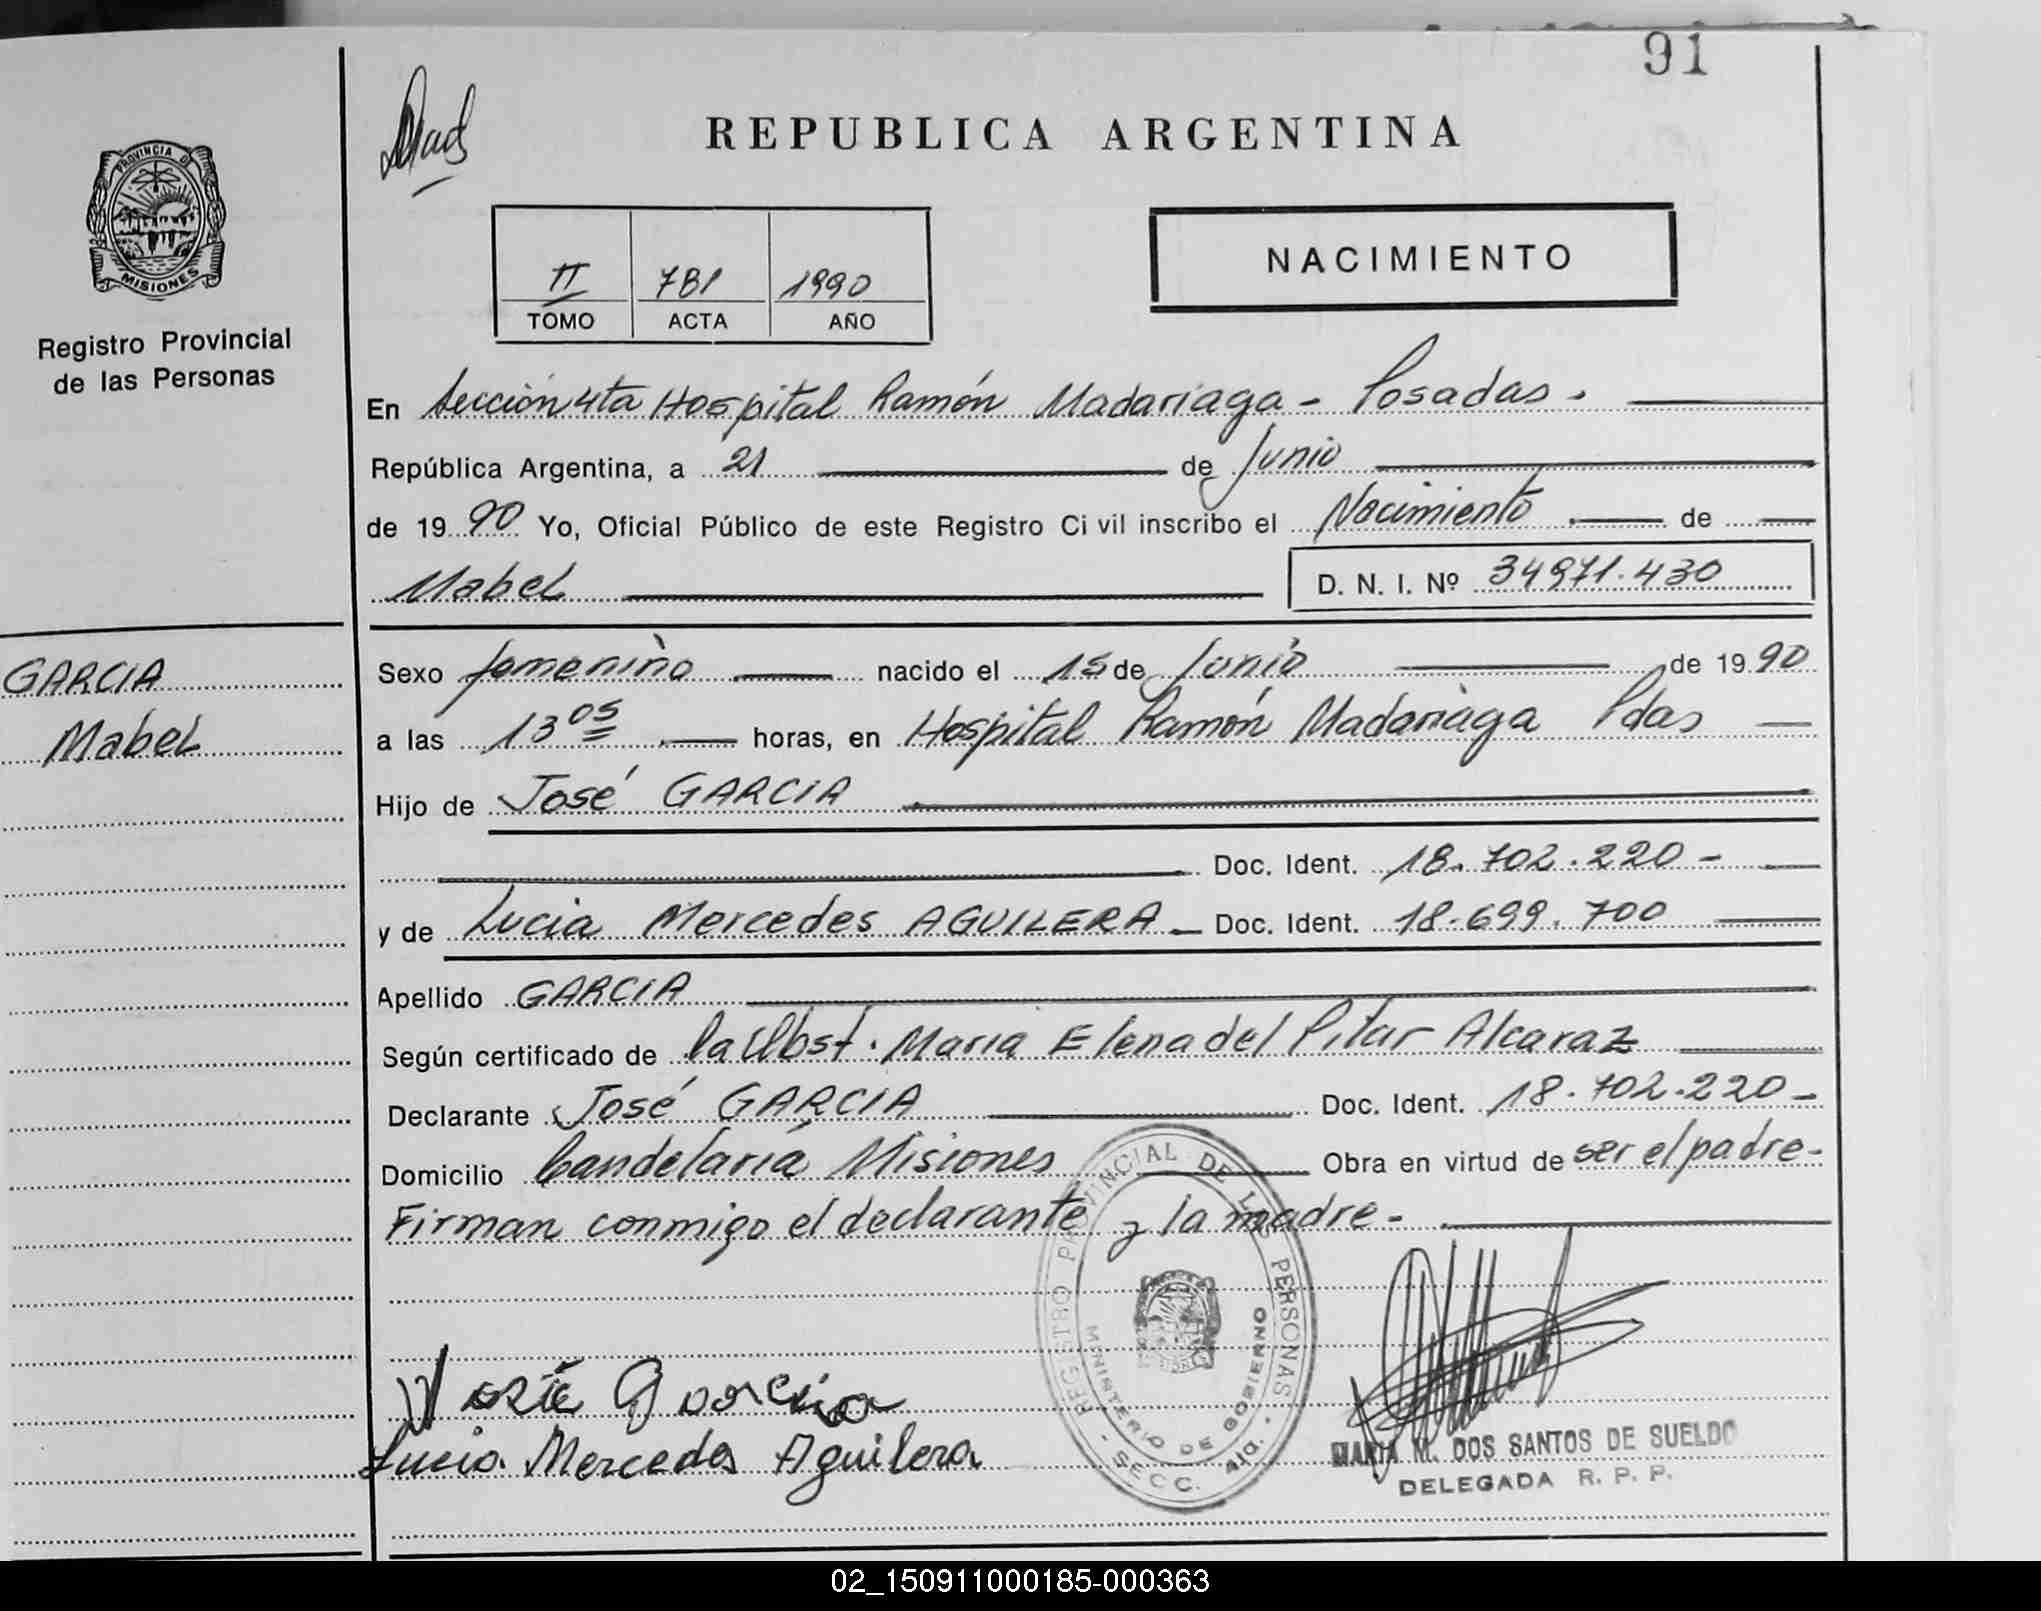 91
REPUBLICA ARGENTINA
PROVINCIA DE
MISIONES
Registro Provincial
de las Personas
NACIMIENTO
II 781 1990
TOMO ACTA AÑO
En Sección 4ta Hospital Ramón Madariaga - Posadas.
República Argentina, a 21 de Junio
de 1990 Yo, Oficial Público de este Registro Civil inscribo el Nacimiento de
Mabel D. N. I. Nº 34971.430
GARCIA
Mabel
Sexo femenino nacido el 15 de Junio de 1990
a las 13 05 horas, en Hospital Ramón Madariaga Pdas
Hijo de José GARCIA
Doc. Ident. 18.702.220-
y de Lucia Mercedes AGUILERA - Doc. Ident. 18.699.700
Apellido GARCIA
Según certificado de la Obst. Maria Elena del Pilar Alcaraz
Declarante José GARCIA Doc. Ident. 18.702.220-
Domicilio Candelaria Misiones Obra en virtud de ser el padre-
Firman conmigo el declarante y la madre-
REGISTRO PROVINCIAL DE LAS PERSONAS
MINISTERIO DE GOBIERNO
- SECC. 4ta. -
José Garcia
Lucia Mercedes Aguilera
MARIA M. DOS SANTOS DE SUELDO
DELEGADA R. P. P.
02_150911000185-000363